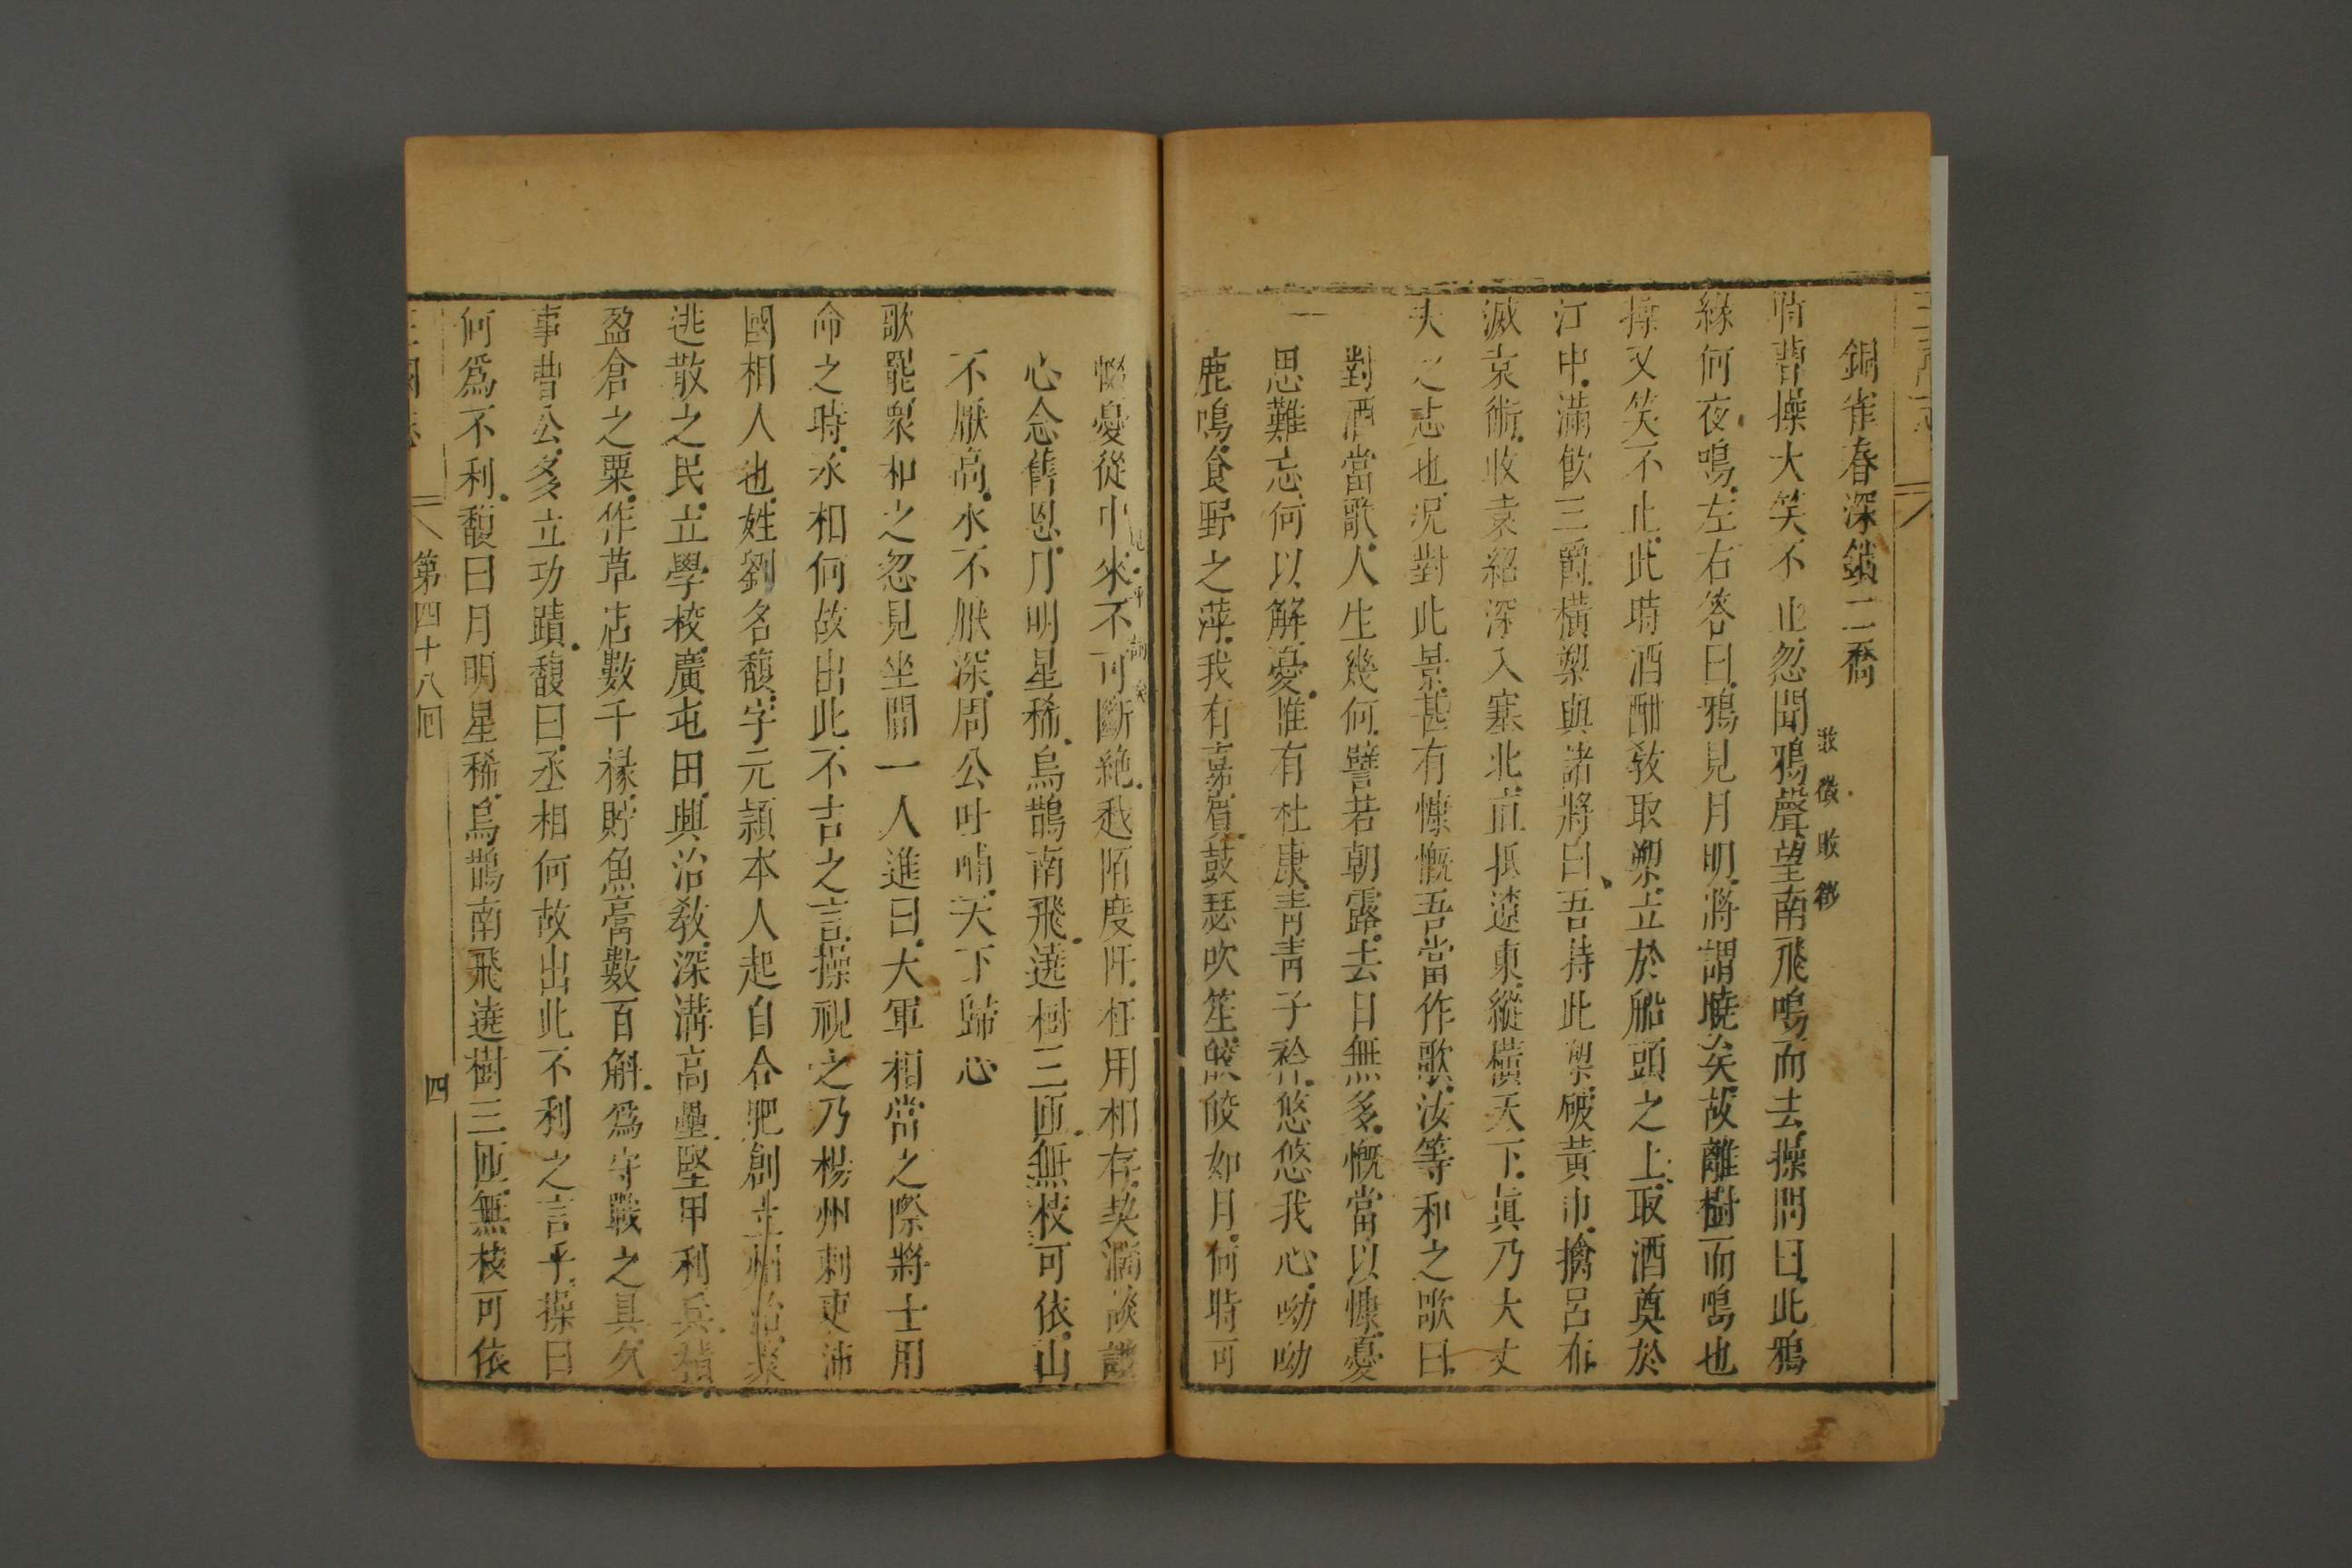 銅雀春深鎖二喬
時曹操大笑不止忽聞鴉聲望南飛鳴而去操問曰此鴉
緣何夜鳴左右答曰鴉見月明將謂曉矣故離樹而鳴也
操又笑不止此時酒酣教取槊立於船頭之上取酒奠於
江中滿飲三爵橫槊與諸將曰吾持此槊破黃巾擒呂布
滅袁術收袁紹深入塞北直抵遼東縱橫天下真乃大丈
夫之志也況對此景甚有慷慨吾當作歌汝等和之歌曰
對酒當歌人生幾何譬若朝露去日無多慨當以慷憂
思難忘何以解憂惟有杜康青青子衿悠悠我心呦呦
鹿鳴食野之萍我有嘉賓鼓瑟吹笙皎皎如月何時可
輟憂從中來不可斷絕越陌度阡枉用相存契濶談讌
心念舊恩月明星稀烏鵲南飛遶樹三匝無枝可依山
不厭高水不厭深周公吐哺天下歸心
歌罷衆和之忽見坐間一人進曰大軍相當之際將士用
命之時丞相何故出此不吉之言操視之乃楊州刺吏沛
國相人也姓劉名馥字元頴本人起自合肥創立州治聚
逃散之民立學校廣屯田興治教深溝高壘堅甲利兵積
盈倉之粟作草苫數千椽貯魚膏數百斛爲守戰之具久
事曹公多立功蹟馥曰丞相何故出此不利之言乎操曰
何爲不利馥曰月明星稀烏鵲南飛遶樹三匝無枝可依
第四十八回
四